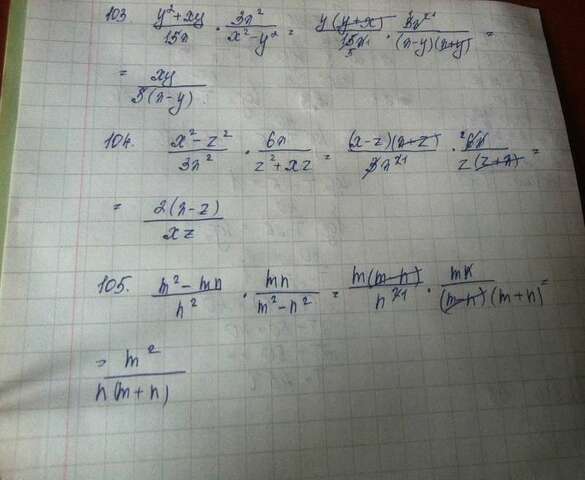 103 (y²+xy)/15x · 3x²/(x²-y²) = y(y+x)/15x · 3x²/((x-y)(x+y)) =
= xy/(5(x-y))
104. (x²-z²)/3x² · 6x/(z²+xz) = (x-z)(x+z)/3x² · 6x/(z(z+x)) =
= 2(x-z)/xz
105. (m²-mn)/n² · mn/(m²-n²) = m(m-n)/n² · mn/((m-n)(m+n)) =
= m²/(n(m+n))